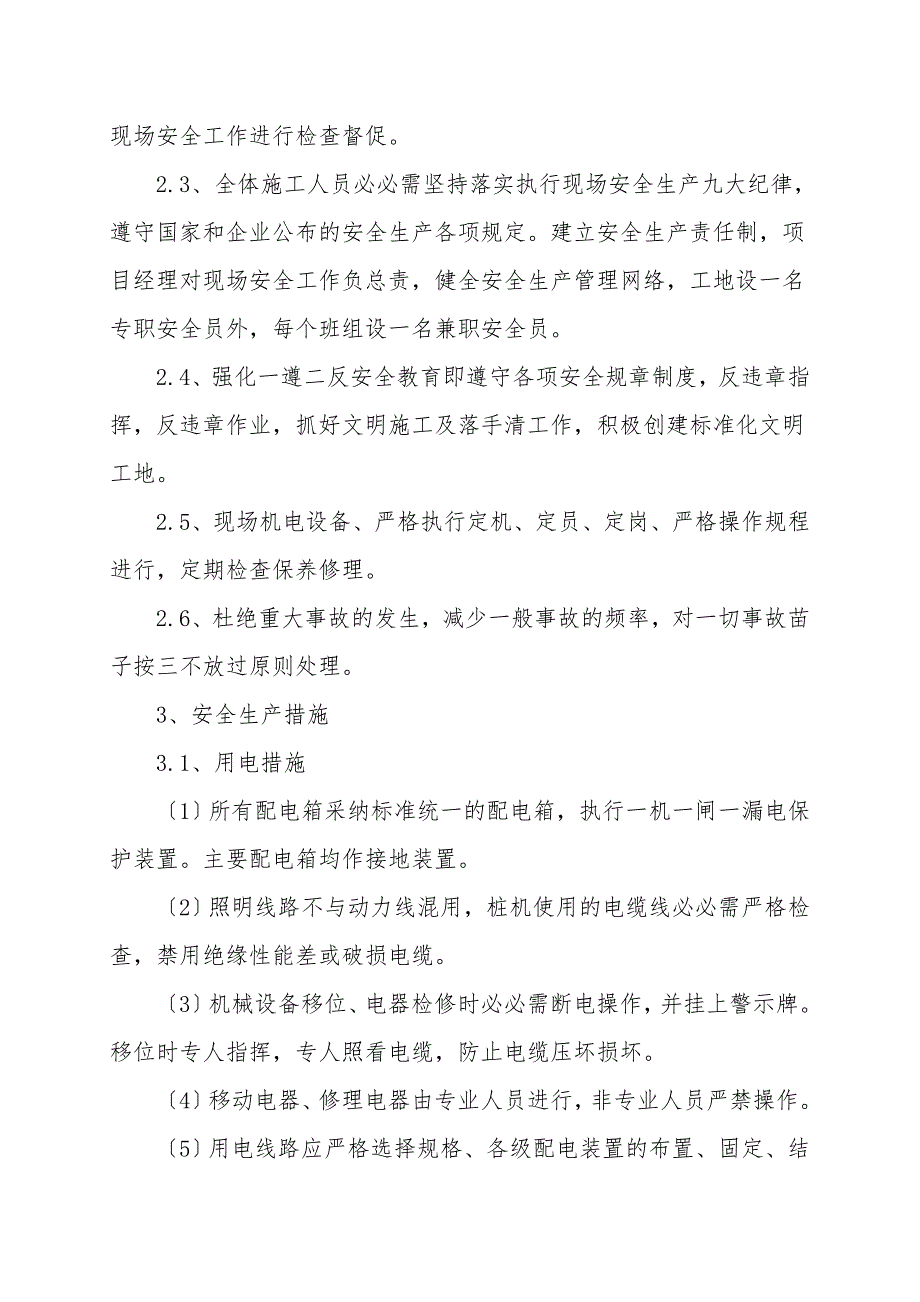 现场安全工作进行检查督促。
2.3、全体施工人员必必需坚持落实执行现场安全生产九大纪律，
遵守国家和企业公布的安全生产各项规定。建立安全生产责任制，项
目经理对现场安全工作负总责，健全安全生产管理网络，工地设一名
专职安全员外，每个班组设一名兼职安全员。
2.4、强化一遵二反安全教育即遵守各项安全规章制度，反违章指
挥，反违章作业，抓好文明施工及落手清工作，积极创建标准化文明
工地。
2.5、现场机电设备、严格执行定机、定员、定岗、严格操作规程
进行，定期检查保养修理。
2.6、杜绝重大事故的发生，减少一般事故的频率，对一切事故苗
子按三不放过原则处理。
3、安全生产措施
3.1、用电措施
〔1〕所有配电箱采纳标准统一的配电箱，执行一机一闸一漏电保
护装置。主要配电箱均作接地装置。
〔2〕照明线路不与动力线混用，桩机使用的电缆线必必需严格检
查，禁用绝缘性能差或破损电缆。
〔3〕机械设备移位、电器检修时必必需断电操作，并挂上警示牌。
移位时专人指挥，专人照看电缆，防止电缆压坏损坏。
〔4〕移动电器、修理电器由专业人员进行，非专业人员严禁操作。
〔5〕用电线路应严格选择规格、各级配电装置的布置、固定、结